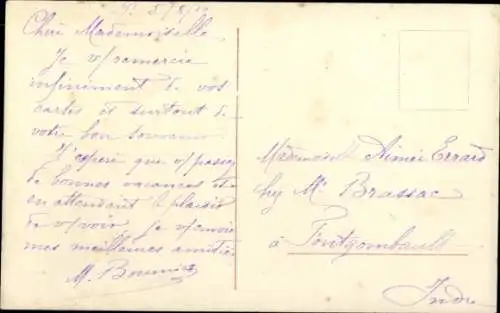 Chère Mademoiselle
Je v/ remercie
infiniment de vos
cartes et surtout de
votre bon souvenir
J'espère que v/ passez
de bonnes vacances et
en attendant le plaisir
de v/ voir Je v/ envoie
mes meilleures amitiés
Mademoiselle Aimée Errard
chez Mr Brassac
à Fontgombault
Indre